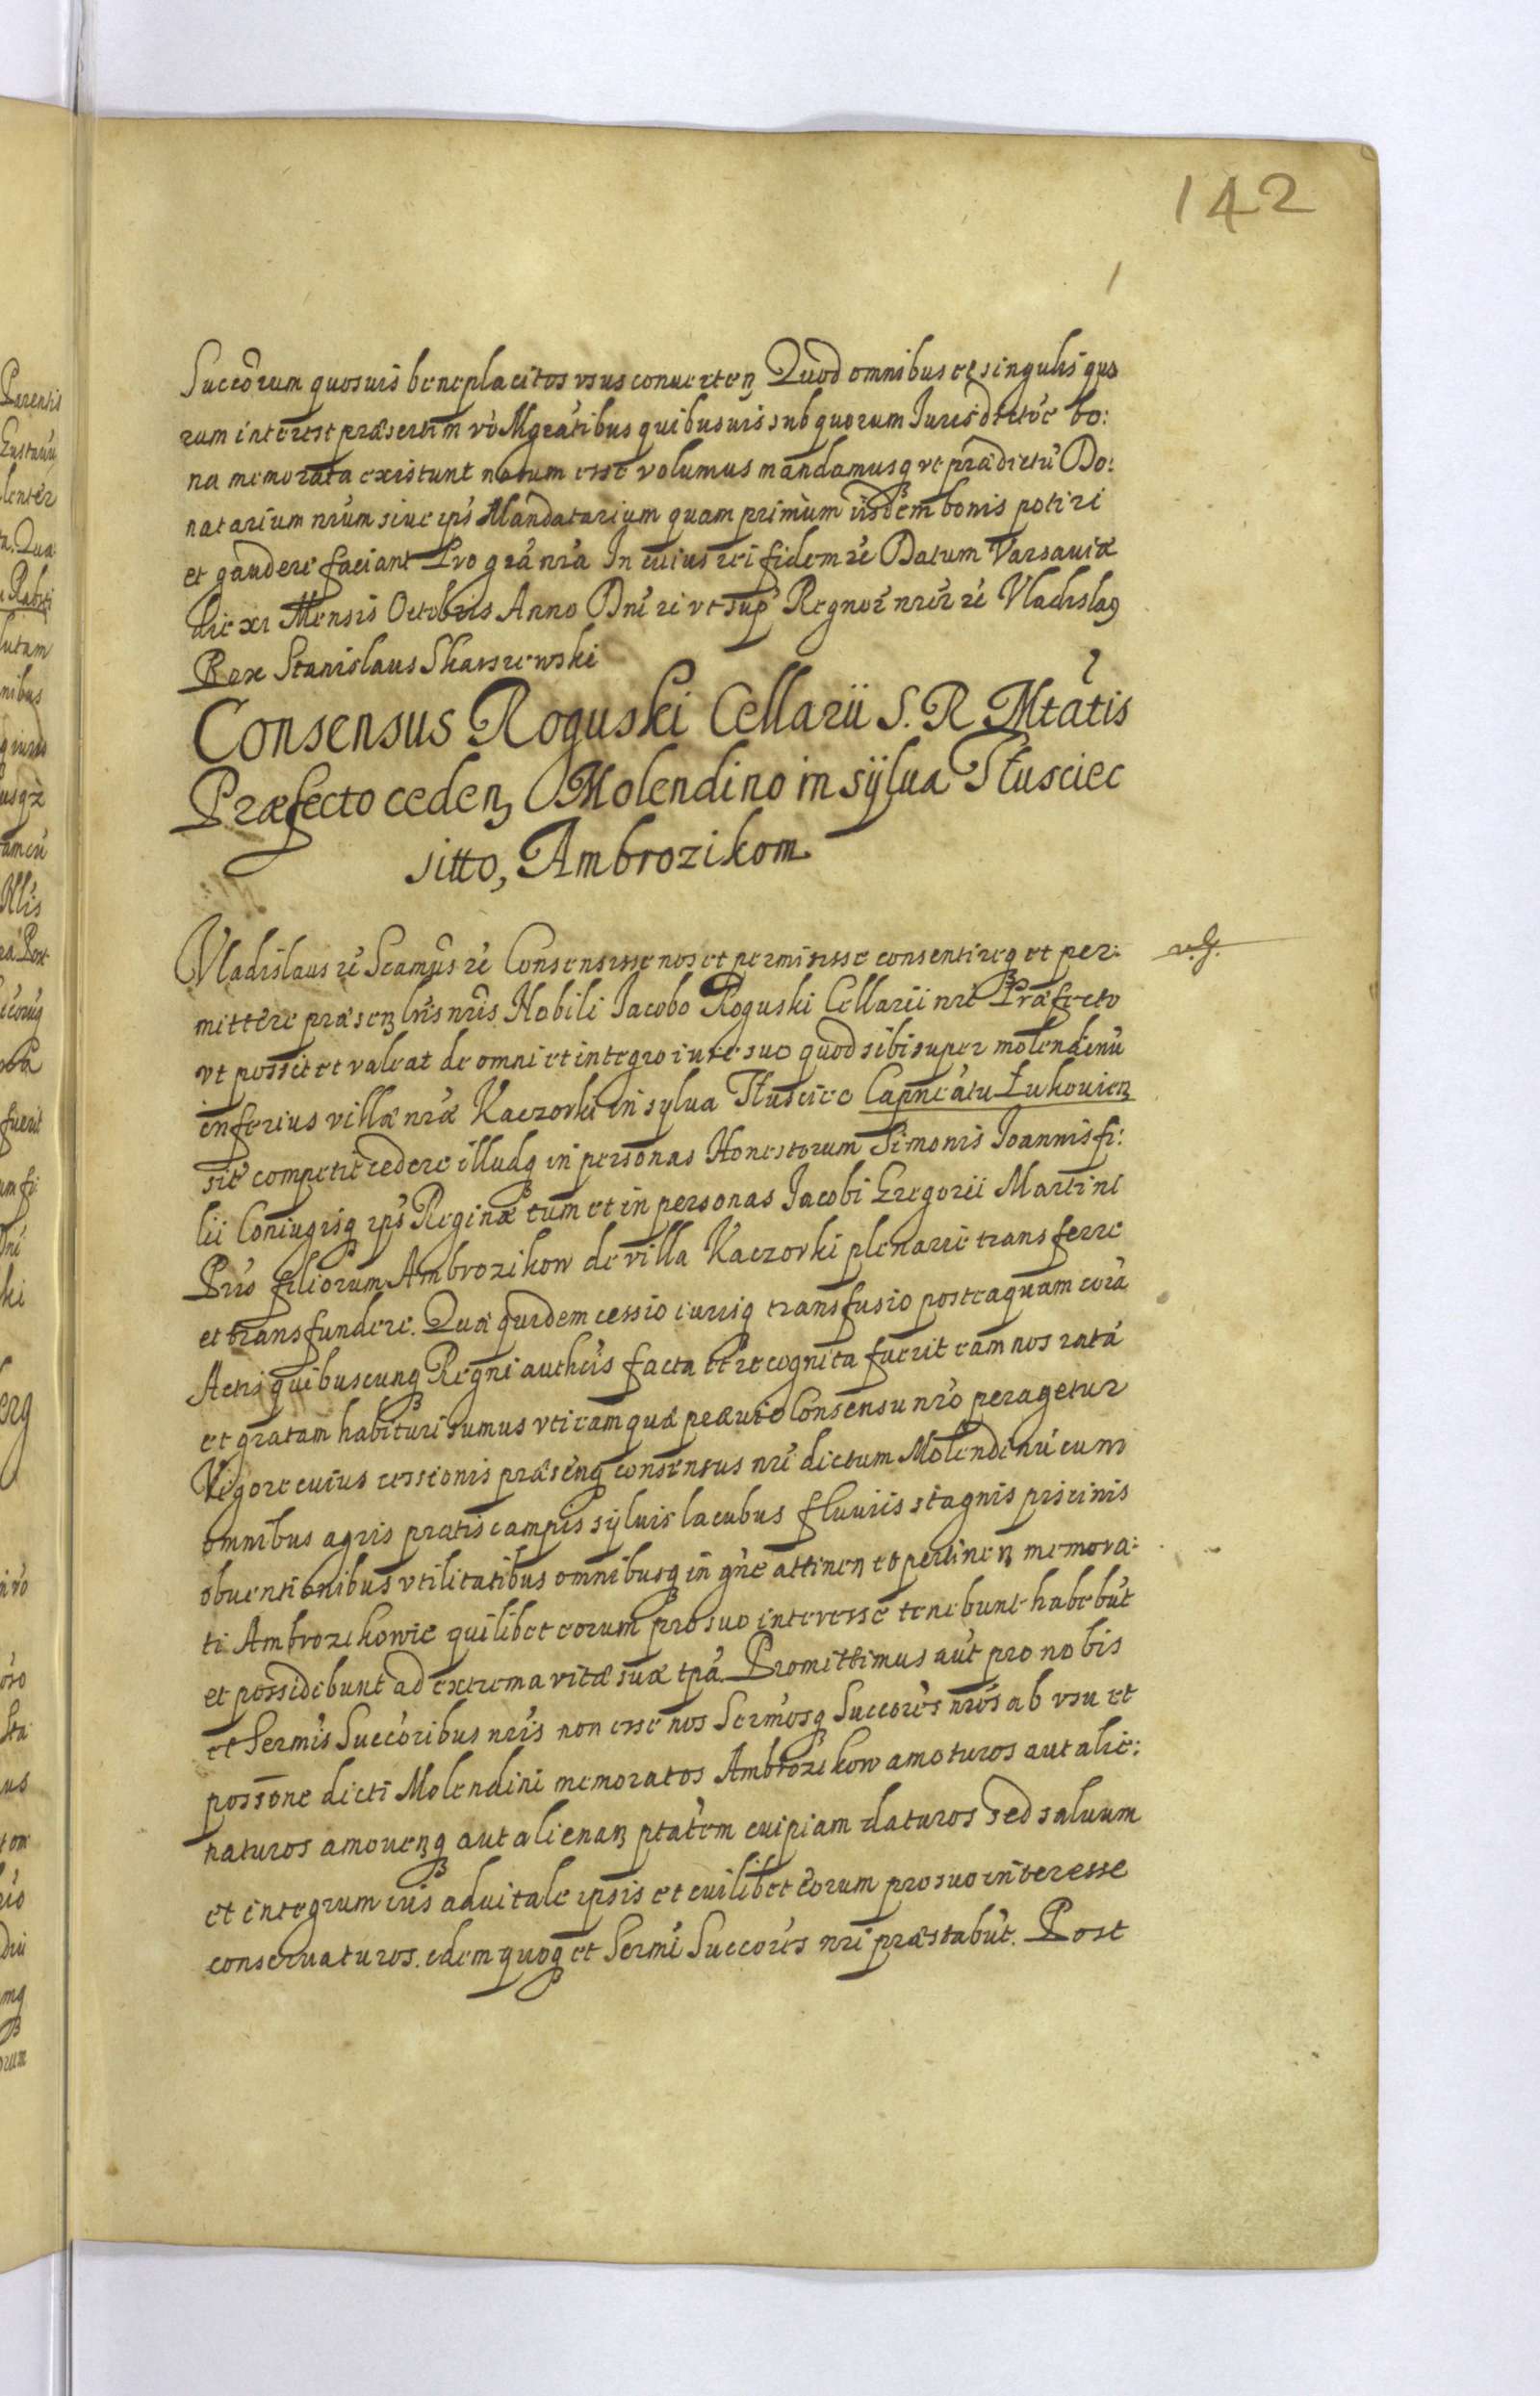 142
Succorum quosuis beneplacitos vsus conuerten. Quod omnibus et singulis quo
rum interest præsertim vo Mgratibus quibusuis sub quorum Jurisdictoe bo:
na memorata existunt notum esse volumus mandamusq vt prædictu Do:
natarium nrum siue ips Mandatarium quam primum iisdem bonis potiri
et gaudere faciant Pro gra nra In cuius rei fidem &c Datum Varsauiæ
die xi Mensis Octobris Anno Dni &c vt sup Regnor nror &c Vladislaq
Rex Stanislaus Skarszewski
Consensus Roguski Cellarii S. R. Mtatis
Præfecto ceden. Molendino in sÿlua Tłusciec
sitto, Ambrozikom
Vladislaus &c Seamus &c Consensisse nos et permisisse consentireq et per:
mittere præsen. lris nris Nobili Jacobo Roguski Cellarii nri Præfecto
vt possit et valeat de omni et integro iure suo quod sibi super molendinu
inferius villæ nræ Kaczorki in sylua Tłusciec Capneatu Łukouien.
site competit cedere illudq in personas Honestorum Simonis Joannis fi:
lii Coniugisq ips Reginæ tum et in personas Jacobi Gregorii Martini
Prio filiorum Ambrozikow de villa Kaczorki plenarie transferre
et transfundere. Quæ quidem cessio iurisq transfusio posteaquam cora
Actis quibuscunq Regni autheis facta et recognita fuerit eam nos rata
et gratam habituri sumus vti eam quæ præuio Consensu nro peragetur
Vigore cuius cessionis præsenq consensus nri dictum Molendinu cum
omnibus agris pratis campis sÿluis lacubus fluuiis stagnis piscinis
obuentionibus vtilitatibus omnibusq in gne attinen. et pertinen. memora:
ti Ambrozikowie quilibet eorum pro suo interesse tenebunt habebut
et possidebunt ad extrema vitæ suæ tpa. Promittimus aut pro nobis
et Sermis Succoribus nris non esse nos Sermosq Succores nros ab vsu et
possone dicti Molendini memoratos Ambrozikow amoturos aut alie:
naturos amouenq aut alienan. ptatem cuipiam daturos sed saluum
et integrum ius aduitale ipsis et cuilibet eorum pro suo interesse
conseruaturos. idem quoq et Sermi Succores nri præstabut. Post